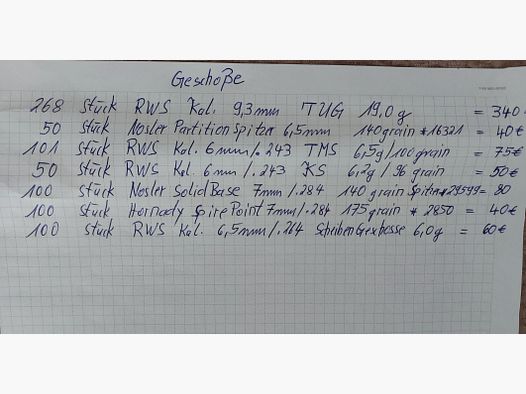 Geschoße
268 Stück RWS Kal. 9,3mm TUG 19,0g = 340
50 Stück Nosler Partition Spitzer 6,5mm 140grain *16321 = 40€
101 Stück RWS Kal. 6mm/.243 TMS 6,5g/100grain = 75€
50 Stück RWS Kal. 6mm/.243 KS 6,2g/96grain = 50€
100 Stück Nosler Solid Base 7mm/.284 140 grain Spitzer *29599 = 80
100 Stück Hornady Spire Point 7mm/.284 175grain * 2850 = 40€
100 Stück RWS Kal. 6,5mm/.264 6,0g = 60€